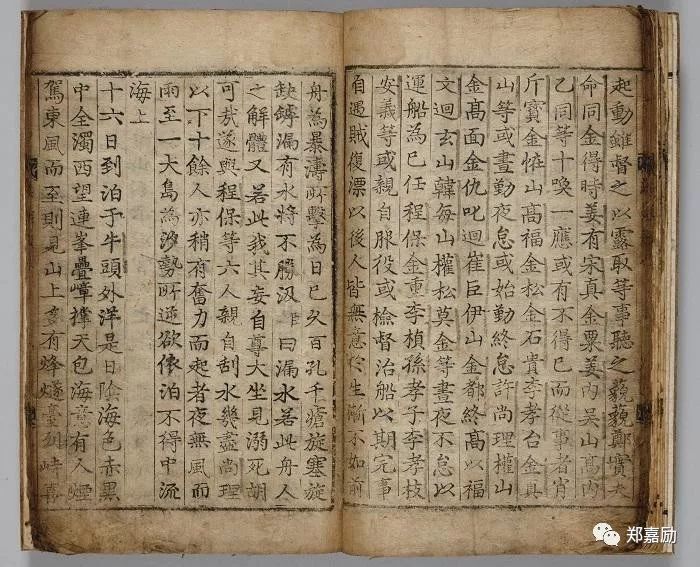 起動雖督之以露取等事聽之藐藐鄭實夫
命同金得時姜有宋真金粟姜內吳山高內
乙同等十喚一應或有不得已而從事者肖
斤寶金怍山高福金松金石貴李孝台金真
山等或晝勤夜怠或始勤終怠許尚理權山
金高面金仇叱迴崔巨伊山金都終高以福
文迴玄山韓每山權松莫金等晝夜不怠以
運船為已任程保金重李楨孫孝子李孝枝
安義等或親自服役或檢督治船以期完事
自遇賊復漂以後人皆無意於生漸不如前
舟為暴濤所擊為日已久百孔千瘡旋塞旋
缺罅漏有水將不勝汲臣曰漏水若此舟人
之解體又若此我其妄自尊大坐見溺死胡
可哉遂與程保等六人親自刮水幾盡尚理
以下十餘人亦稍有奮力而起者夜無風而
雨至一大島為汐勢所逆欲依泊不得中流
海上
十六日到泊于牛頭外洋是日陰海色赤黑
中全濁西望連峯疊嶂撑天包海意有人煙
駕東風而至則見山上多有烽燧臺列峙喜
郑嘉励